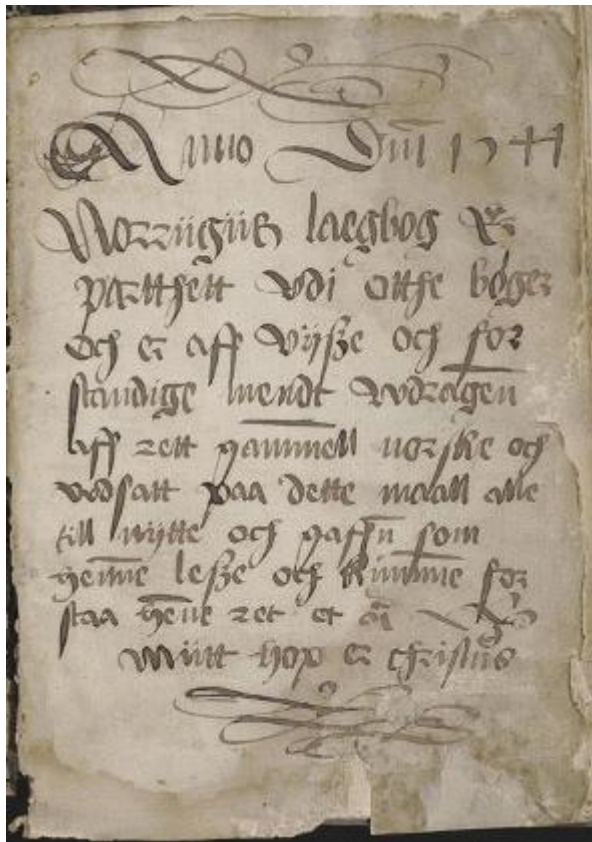 Anno Dni 15 44
Norriigiis laegbog Er
parttheit vdi otthe bøger
Och er aff vijsze och for
standige mendt vvdragen
aff rett gammell norske och
vdsatt paa dette maall alle
till nytte och gaffn som
henne lesze och kunne for
staa henne ret et
Miitt hop er christus